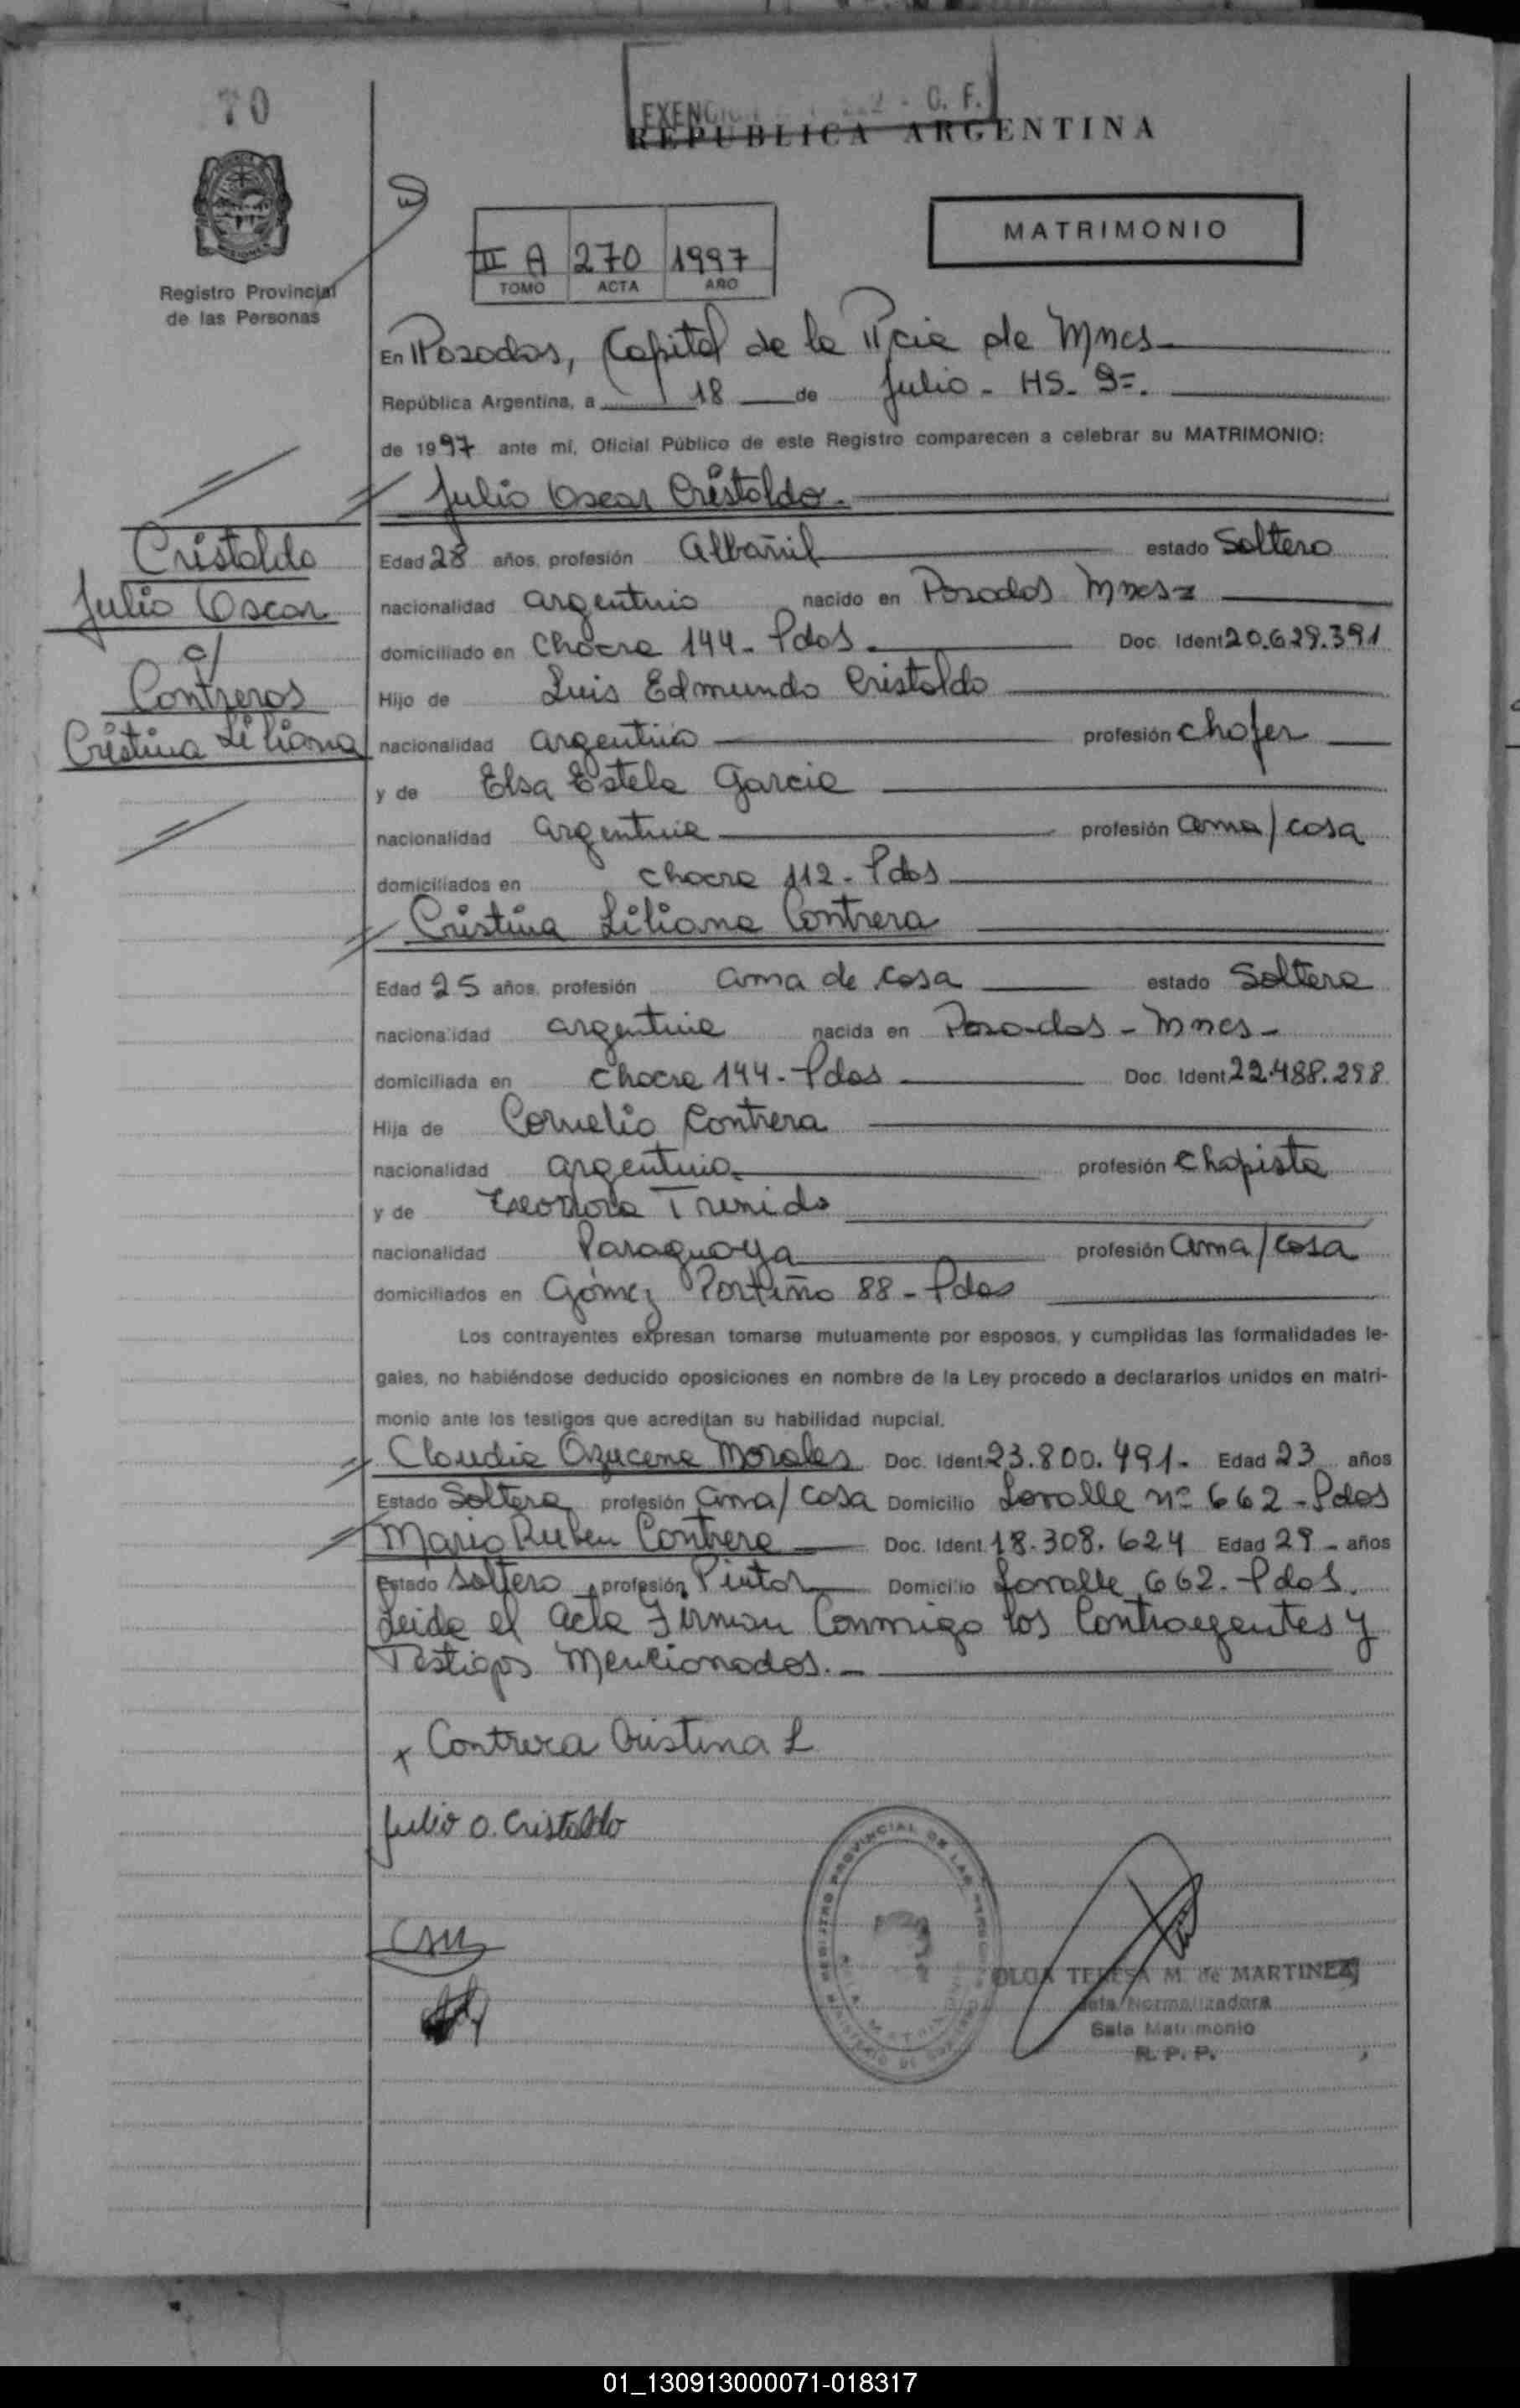 70
EXENCION C. F.
REPUBLICA ARGENTINA
Registro Provincial
de las Personas
MATRIMONIO
II A 270 1997
TOMO ACTA AÑO
En Posadas, Capital de la Pcia de Mnes
República Argentina, a 18 de Julio - HS. 9=.
de 1997 ante mí, Oficial Público de este Registro comparecen a celebrar su MATRIMONIO:
Julio Oscar Cristaldo.
Cristaldo
Julio Oscar
c/
Contreras
Cristina Liliana
Edad 28 años, profesión Albañil estado Soltero
nacionalidad argentino nacido en Posadas Mnes=
domiciliado en Chacra 144 - Pdas. Doc. Ident 20.629.391
Hijo de Luis Edmundo Cristaldo
nacionalidad argentino profesión chofer
y de Elsa Estela Garcia
nacionalidad argentina profesión ama/casa
domiciliados en chacra 112 - Pdas
Cristina Liliana Contrera
Edad 25 años, profesión ama de casa estado Soltera
nacionalidad argentina nacida en Posadas - Mnes -
domiciliada en chacra 144 - Pdas Doc. Ident 22.488.298
Hija de Cornelio Contrera
nacionalidad argentino. profesión chapista
y de Trinida
nacionalidad Paraguaya profesión ama/casa
domiciliados en Gómez Portiño 88 - Pdas
Los contrayentes expresan tomarse mutuamente por esposos, y cumplidas las formalidades le-
gales, no habiéndose deducido oposiciones en nombre de la Ley procedo a declararlos unidos en matri-
monio ante los testigos que acreditan su habilidad nupcial.
Claudia Azucena Morales Doc. Ident. 23.800.491 - Edad 23 años
Estado Soltera profesión ama/casa Domicilio Lavalle nº 662 - Pdas
Mario Ruben Contrera Doc. Ident. 18.308.624 Edad 29 - años
Estado soltero profesión Pintor Domicilio Lavalle 662 - Pdas.
Leida el acta Firman Conmigo los Contrayentes y
Testigos Mencionados. -
x Contrera Cristina L
Julio O. Cristaldo
REGISTRO PROVINCIAL DE LAS PERSONAS
OLGA TERESA M. de MARTINEZ
Jefa Normalizadora
Sala Matrimonio
R. P. P.
01_130913000071-018317